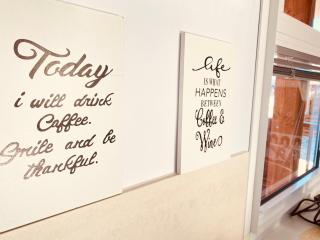 Today
i will drink
Coffee.
Smile and be
thankful.
life
IS WHAT
HAPPENS
BETWEEN
Coffee &
Wine